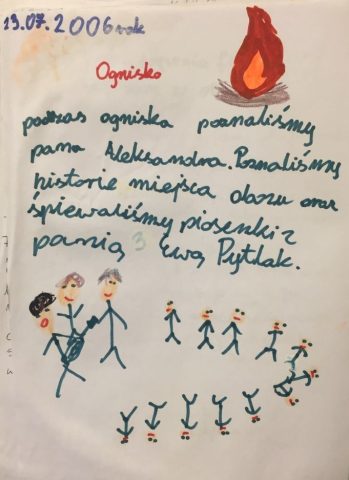 19.07.2006 rok
Ognisko
podczas ogniska poznaliśmy
pana Aleksandra. Poznaliśmy
historie miejsca obozu oraz
śpiewaliśmy piosenki z
panią Ewą Pytlak.